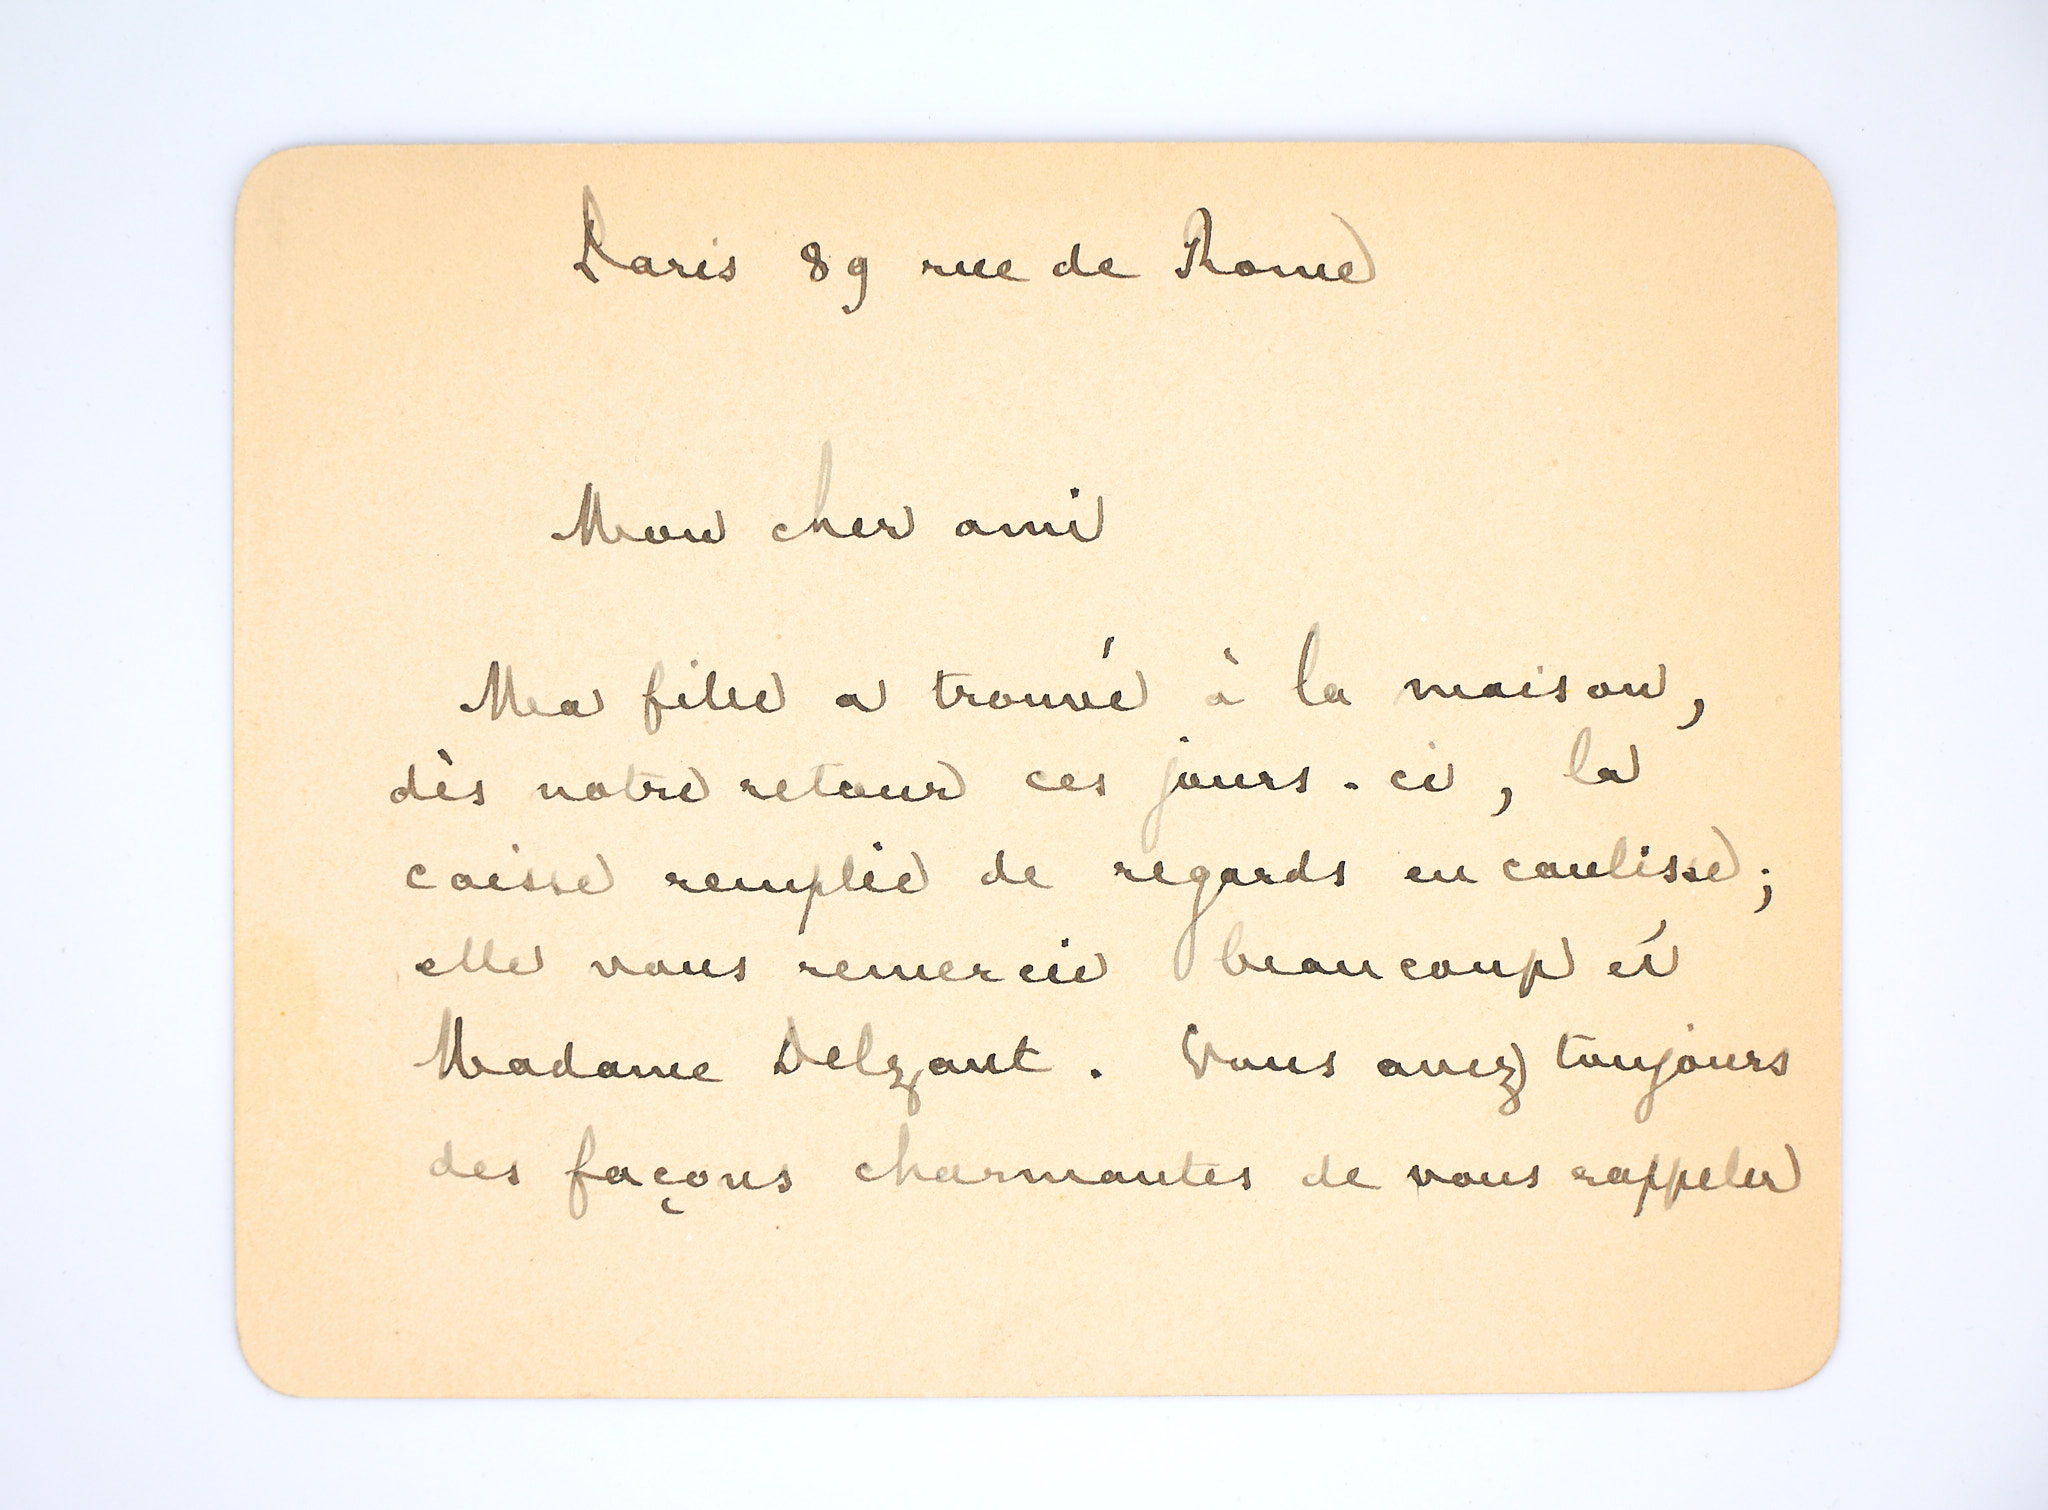 Paris 89 rue de Rome
Mon cher ami
Ma fille a trouvé à la maison,
dès notre retour ces jours-ci, la
caisse remplie de regards en coulisse;
elle vous remercie beaucoup et
Madame Delzant. Vous avez toujours
des façons charmantes de vous rappeler